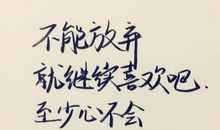 不能放弃
就继续喜欢吧.
至少心不会